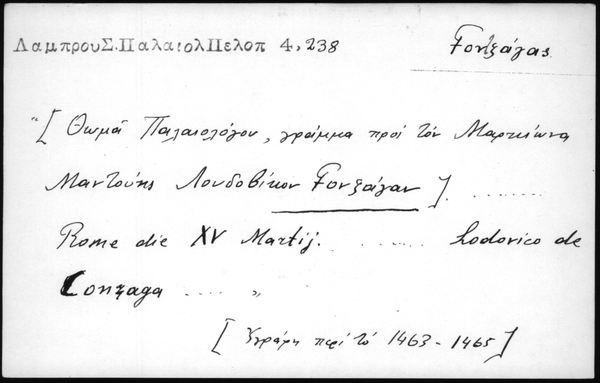 ΛαμπρουΣ.ΠαλαιολΠελοπ 4,238
Γοντζάγας
"[ Θωμᾶ Παλαιολόγου, γράμμα πρὸς τὸν Μαρκιῶνα
Μαντούης Λουδοβίκον Γονζάγαν ]. .......
Rome die XV Martij. ....... Lodovico de
Gonzaga ..... "
[ Ἐγράφη περὶ τὸ 1463 - 1465 ]